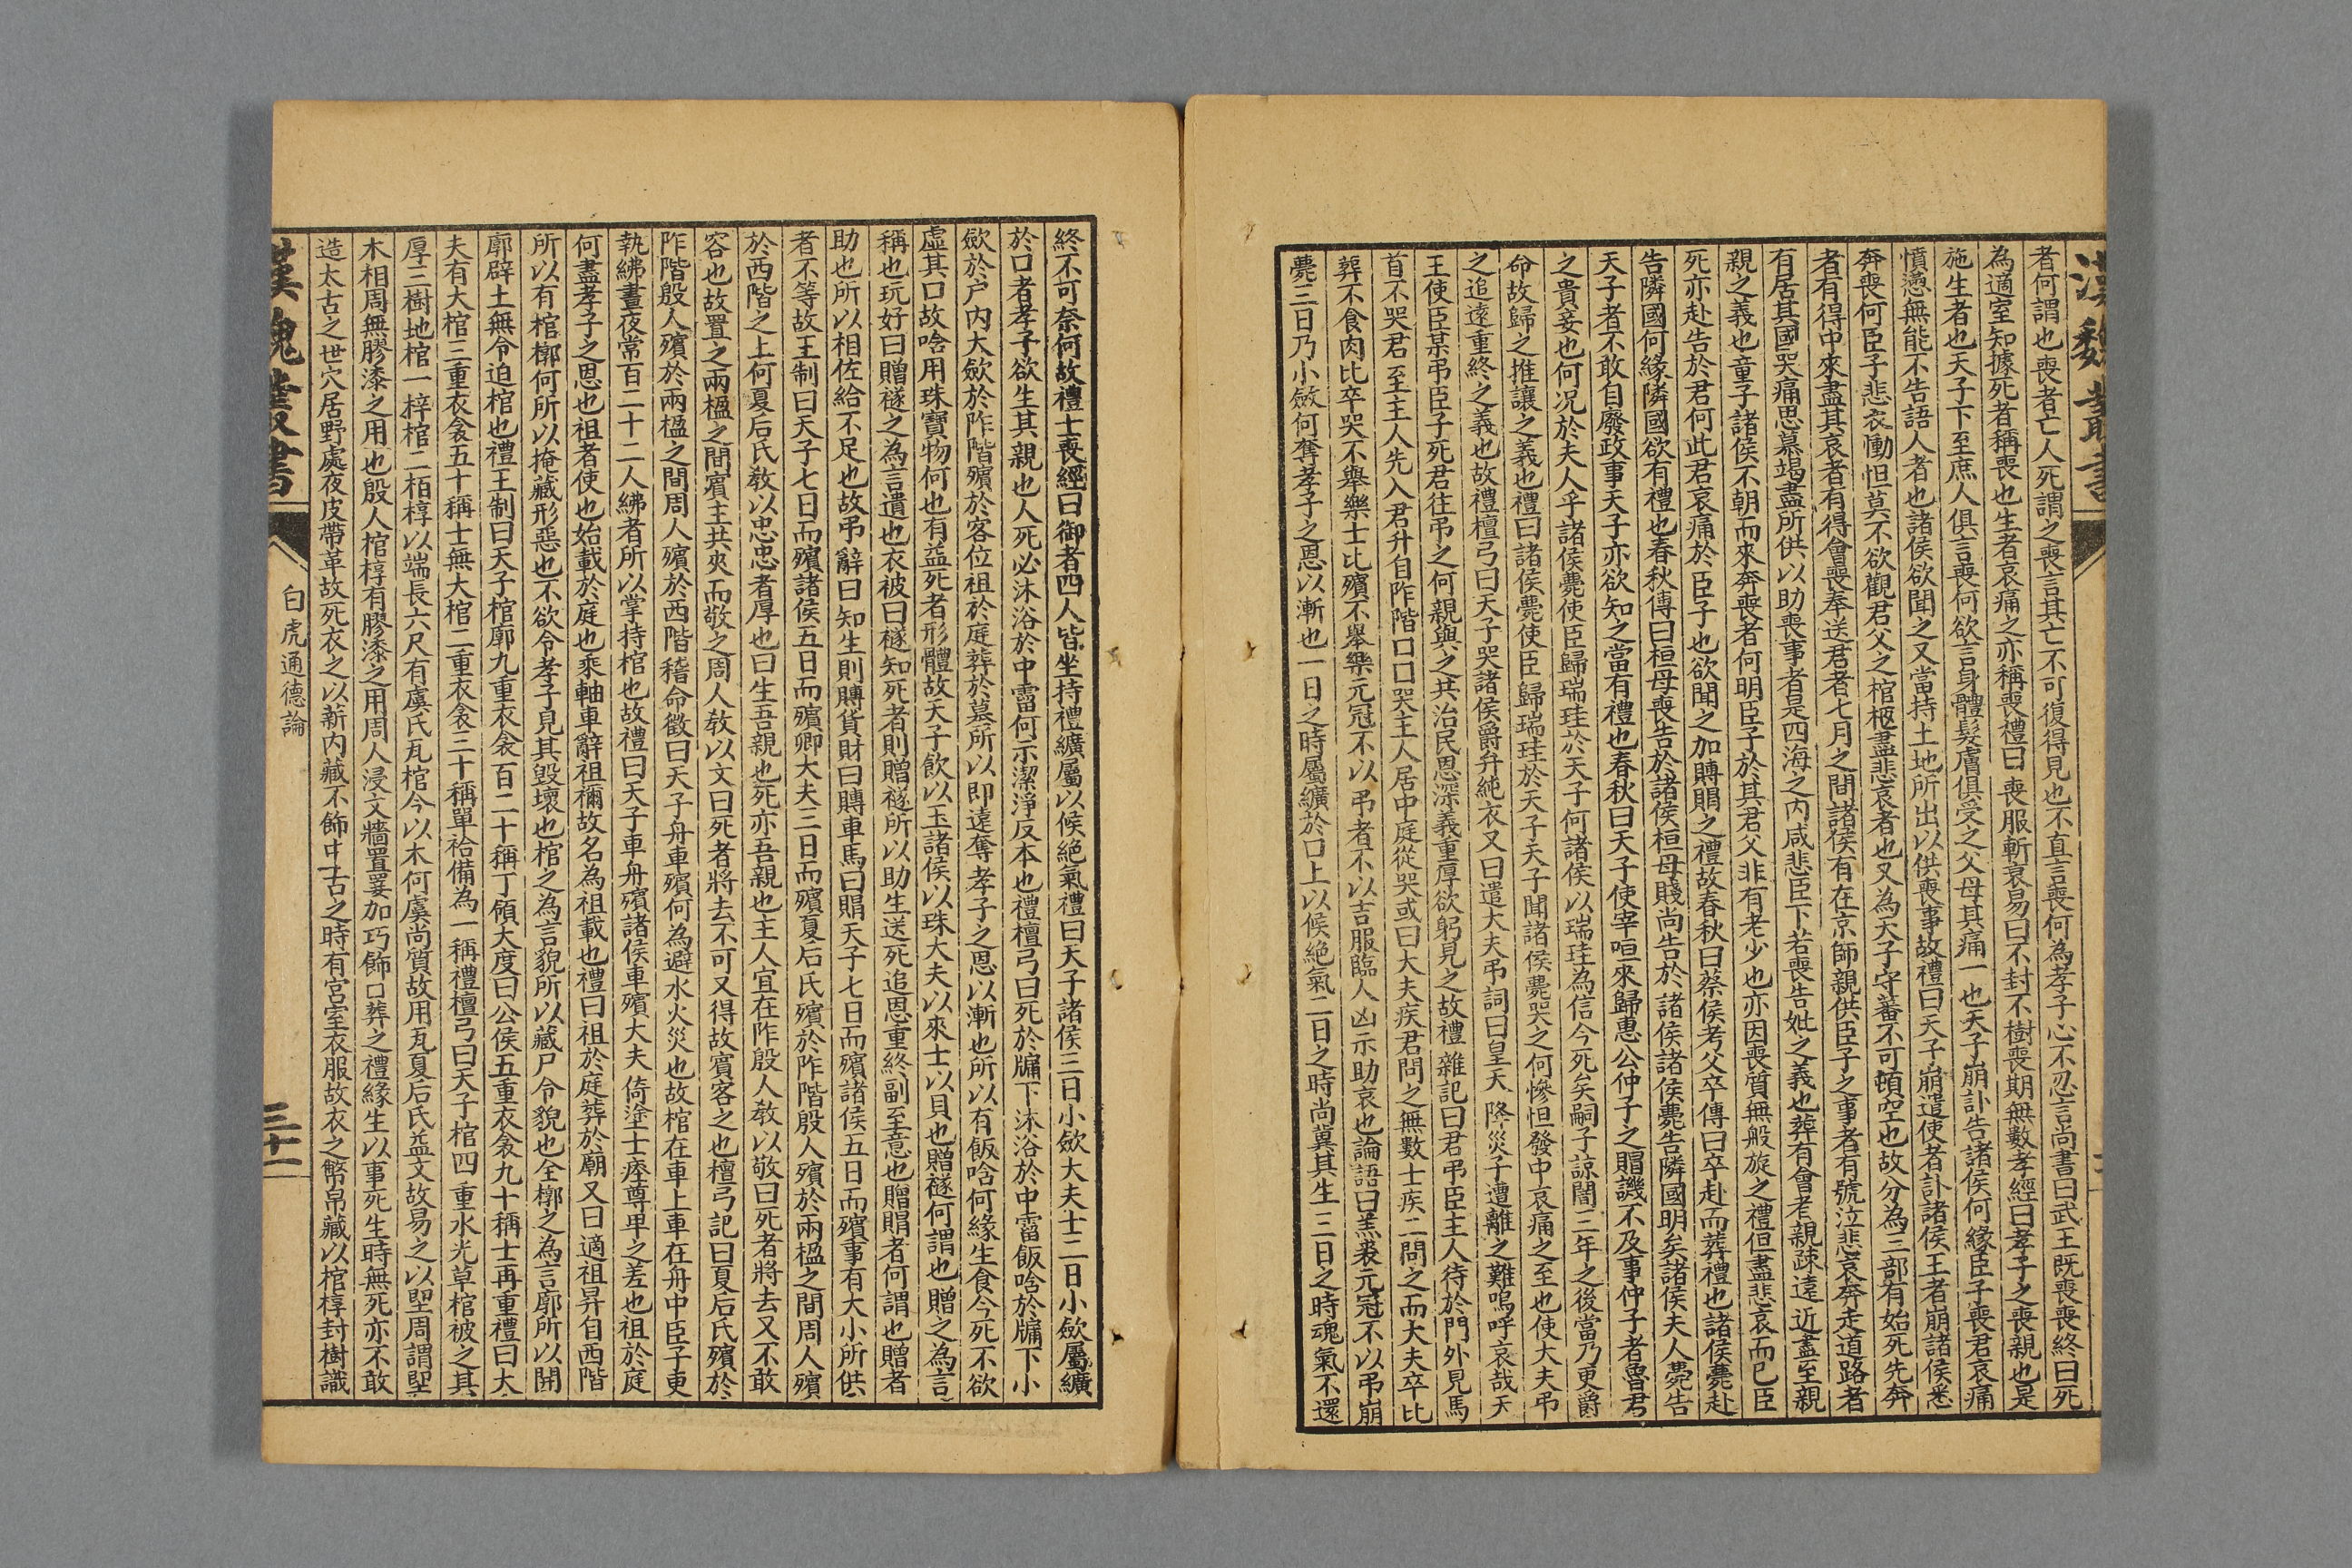 漢魏叢書
者何謂也喪者亡人死謂之喪言其亡不可復得見也不直言喪何為孝子心不忍言尚書曰武王既喪喪終曰死
為適室知據死者稱喪也生者哀痛之亦稱喪禮曰喪服斬衰易曰不封不樹喪期無數孝經曰孝子之喪親也是
施生者也天子下至庶人俱言喪何欲言身體髮膚俱受之父母其痛一也天子崩訃告諸侯何緣臣子喪君哀痛
憤懣無能不告語人者也諸侯欲聞之又當持土地所出以供喪事故禮曰天子崩遣使者訃諸侯王者崩諸侯悉
奔喪何臣子悲哀慟怛莫不欲觀君父之棺柩盡悲哀者也又為天子守蕃不可頓空也故分為三部有始死先奔
者有得中來盡其哀者有得會喪奉送君者七月之間諸侯有在京師親供臣子之事者有號泣悲哀奔走道路者
有居其國哭痛思慕竭盡所供以助喪事者是四海之內咸悲臣下若喪考妣之義也葬有會者親疎遠近盡至親
親之義也童子諸侯不朝而來奔喪者何明臣子於其君父非有老少也亦因喪質無般旋之禮但盡悲哀而已臣
死亦赴告於君何此君哀痛於臣子也欲聞之加賻賵之禮故春秋曰蔡侯考父卒傳曰卒赴而葬禮也諸侯薨赴
告隣國何緣隣國欲有禮也春秋傳曰桓母喪告於諸侯桓母賤尚告於諸侯諸侯薨告隣國明矣諸侯夫人薨告
天子者不敢自廢政事天子亦欲知之當有禮也春秋曰天子使宰咺來歸惠公仲子之賵譏不及事仲子者魯君
之貴妾也何況於夫人乎諸侯薨使臣歸瑞珪於天子何諸侯以瑞珪為信今死矣嗣子諒闇三年之後當乃更爵
命故歸之推讓之義也禮曰諸侯薨使臣歸瑞珪於天子天子聞諸侯薨哭之何慘怛發中哀痛之至也使大夫弔
之追遠重終之義也故禮檀弓曰天子哭諸侯爵弁純衣又曰遣大夫弔詞曰皇天降災子遭離之難嗚呼哀哉天
王使臣某弔臣子死君往弔之何親與之共治民恩深義重厚欲躬見之故禮雜記曰君弔臣主人待於門外見馬
首不哭君至主人先入君升自阼階口口哭主人居中庭從哭或曰大夫疾君問之無數士疾二問之而大夫卒比
葬不食肉比卒哭不舉樂士比殯不舉樂元冠不以弔者不以吉服臨人凶示助哀也論語曰羔裘元冠不以弔崩
薨三日乃小斂何奪孝子之恩以漸也一日之時屬纊於口上以候絕氣二日之時尚冀其生三日之時魂氣不還
終不可奈何故禮士喪經曰御者四人皆坐持禮纊屬以候絕氣禮曰天子諸侯三日小歛大夫士二日小歛屬纊
於口者孝子欲生其親也人死必沐浴於中霤何示潔淨反本也禮檀弓曰死於牖下沐浴於中霤飯唅於牖下小
歛於户內大歛於阼階殯於客位祖於庭葬於墓所以即遠奪孝子之恩以漸也所以有飯唅何緣生食今死不欲
虛其口故唅用珠寶物何也有益死者形體故天子飲以玉諸侯以珠大夫以來士以貝也贈襚何謂也贈之為言
稱也玩好曰贈襚之為言遺也衣被曰襚知死者則贈襚所以助生送死追恩重終副至意也贈賵者何謂也贈者
助也所以相佐給不足也故弔辭曰知生則賻貨財曰賻車馬曰賵天子七日而殯諸侯五日而殯事有大小所供
者不等故王制曰天子七日而殯諸侯五日而殯卿大夫三日而殯夏后氏殯於阼階殷人殯於兩楹之間周人殯
於西階之上何夏后氏教以忠忠者厚也曰生吾親也死亦吾親也主人宜在阼殷人教以敬曰死者將去又不敢
容也故置之兩楹之間賓主共夾而敬之周人教以文曰死者將去不可又得故賓客之也檀弓記曰夏后氏殯於
阼階殷人殯於兩楹之間周人殯於西階稽命徵曰天子舟車殯何為避水火災也故棺在車上車在舟中臣子更
執紼晝夜常百二十二人紼者所以掌持棺也故禮曰天子車舟殯諸侯車殯大夫倚塗士瘞尊卑之差也祖於庭
何盡孝子之恩也祖者使也始載於庭也乘軸車辭祖禰故名為祖載也禮曰祖於庭葬於廟又曰適祖昇自西階
所以有棺槨何所以掩藏形惡也不欲令孝子見其毀壞也棺之為言貌所以藏尸令貌也全槨之為言廓所以開
廓辟土無令迫棺也禮王制曰天子棺廓九重衣衾百二十稱丁領大度曰公侯五重衣衾九十稱士再重禮曰大
夫有大棺三重衣衾五十稱士無大棺二重衣衾三十稱單袷備為一稱禮檀弓曰天子棺四重水光草棺被之其
厚三樹地棺一梓棺二栢椁以端長六尺有虞氏瓦棺今以木何虞尚質故用瓦夏后氏益文故易之以堲周謂堲
木相周無膠漆之用也殷人棺椁有膠漆之用周人浸文牆置翣加巧飾口葬之禮緣生以事死生時無死亦不敢
造太古之世穴居野處夜皮帶革故死衣之以薪內藏不飾中古之時有宮室衣服故衣之幣帛藏以棺椁封樹識
漢魏叢書
白虎通德論
三十一